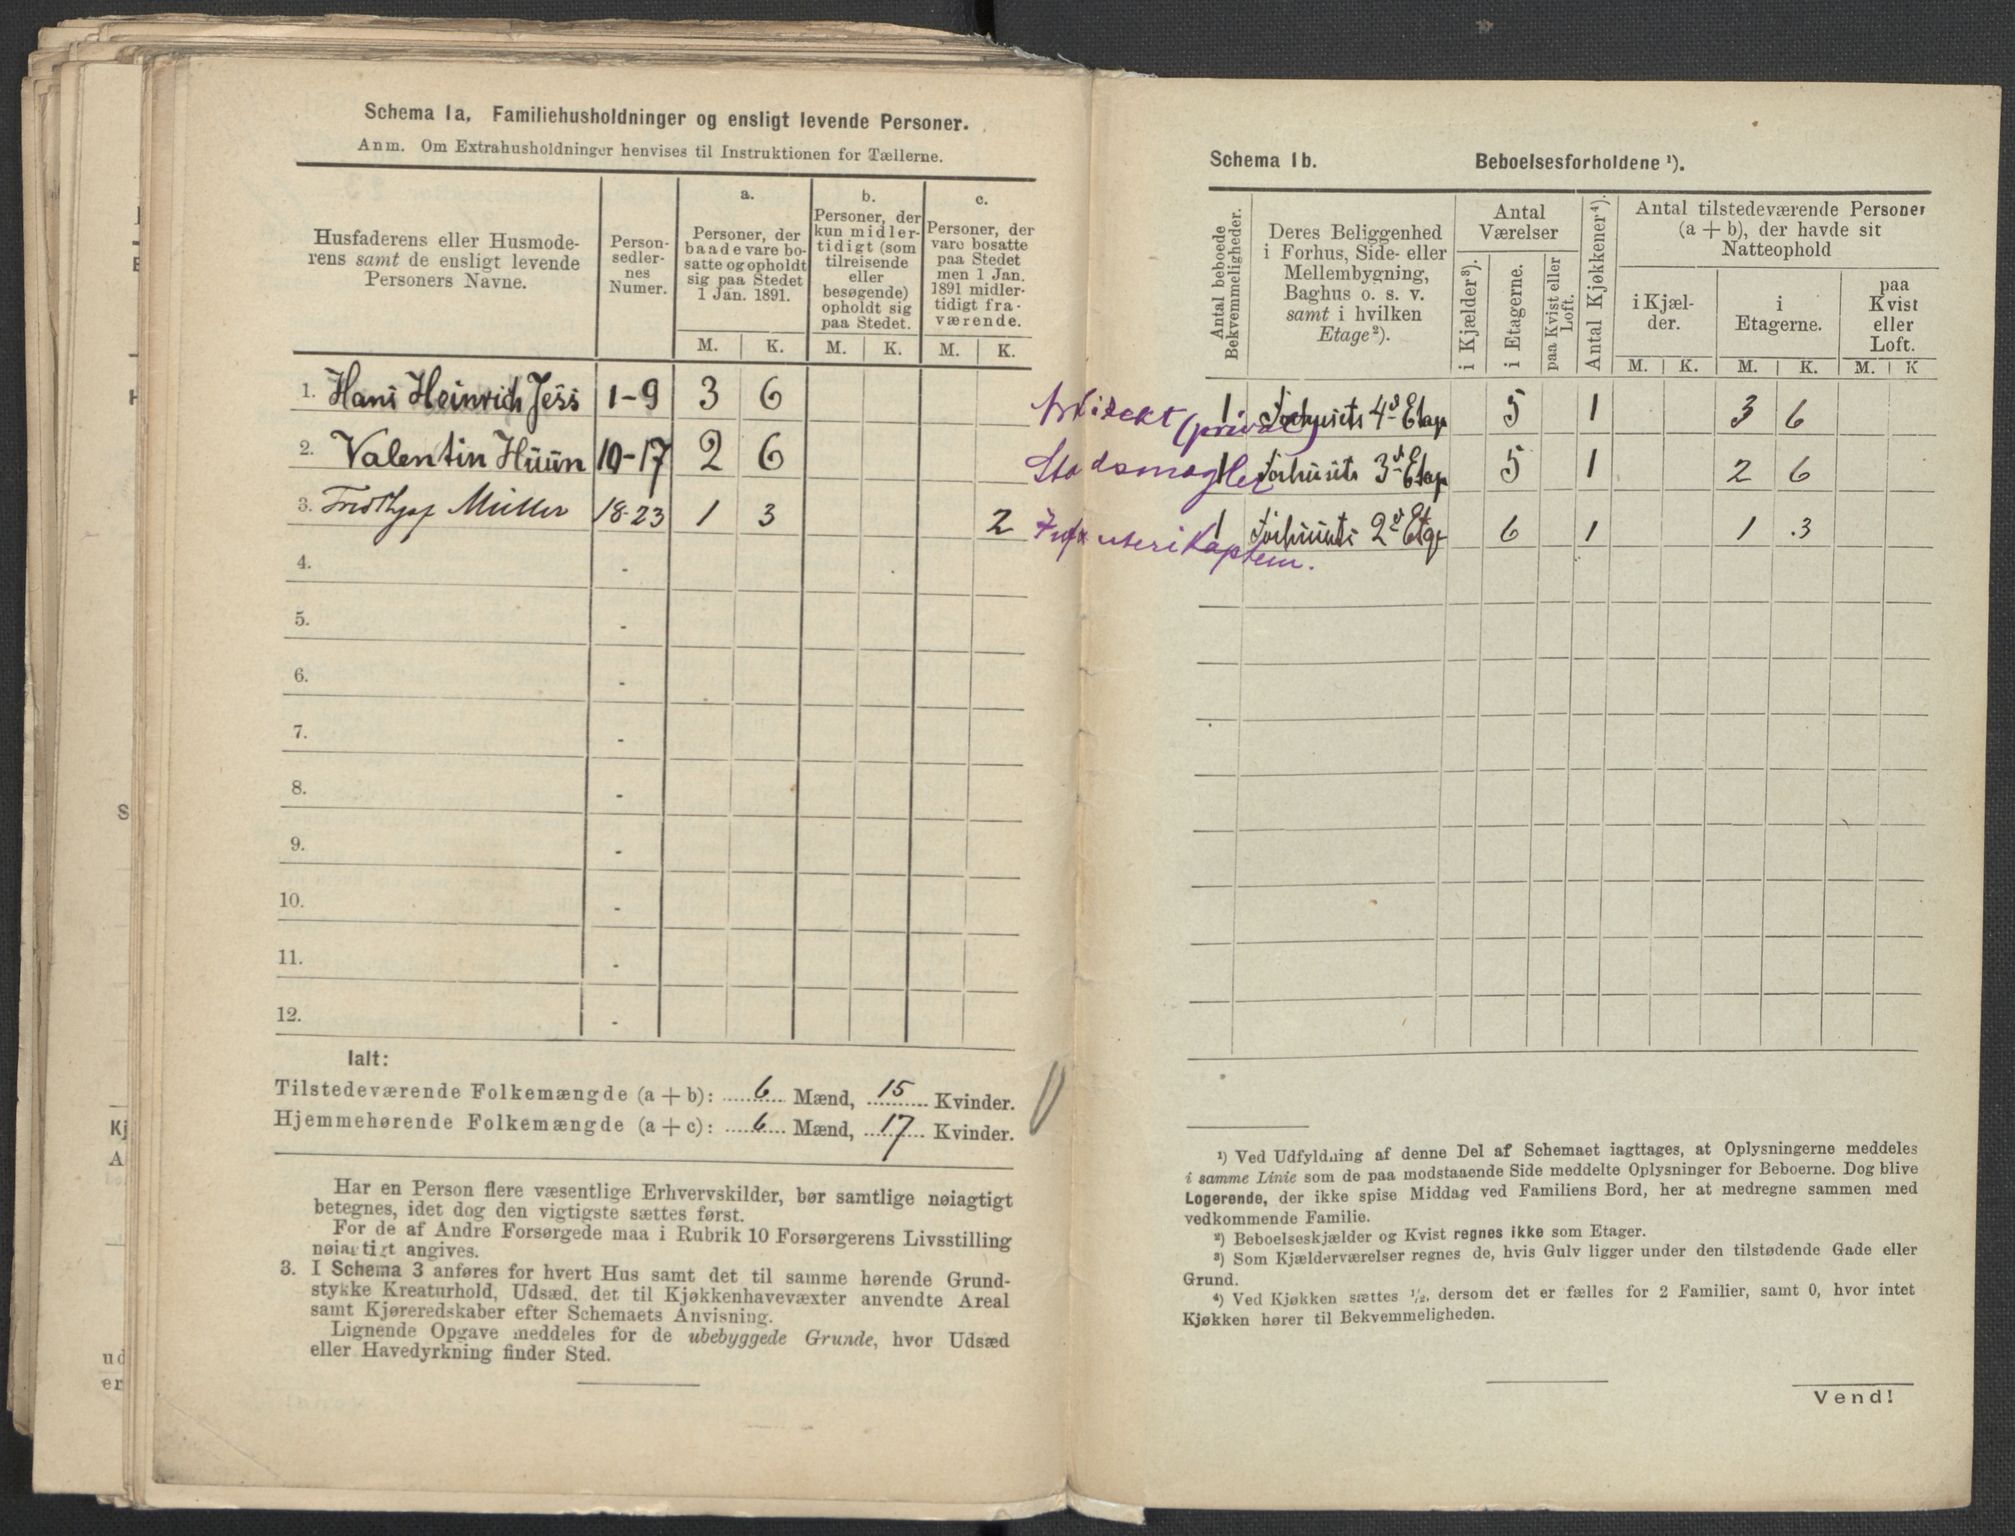 Schema 1a. Familiehusholdninger og ensligt levende Personer.
Anm. Om Extrahusholdninger henvises til Instruktionen for Tællerne.
Husfaderens eller Husmode-
rens samt de ensligt levende
Personers Navne.
Person-
sedler-
nes
Numer.
a.
Personer, der
baade vare bo-
satte og opholdt
sig paa Stedet
1 Jan. 1891.
b.
Personer, der
kun midler-
tidigt (som
tilreisende
eller
besøgende)
opholdt sig
paa Stedet.
c.
Personer, der
vare bosatte
paa Stedet
men 1 Jan.
1891 midler-
tidigt fra-
værende.
M. K. M. K. M. K.
1. Hans Heinrich Jess 1-9 3 6
2. Valentin Huun 10-17 2 6
3. Müller 18-23 1 3 2
4. -
5. -
6. -
7. -
8. -
9. -
10. -
11. -
12. -
Ialt:
Tilstedeværende Folkemængde (a + b): 6 Mænd, 15 Kvinder.
Hjemmehørende Folkemængde (a + c): 6 Mænd, 17 Kvinder.
Har en Person flere væsentlige Erhvervskilder, bør samtlige nøiagtigt
betegnes, idet dog den vigtigste sættes først.
For de af Andre Forsørgede maa i Rubrik 10 Forsørgerens Livsstilling
nøiagtigt angives.
3. I Schema 3 anføres for hvert Hus samt det til samme hørende Grund-
stykke Kreaturhold, Udsæd, det til Kjøkkenhavevæxter anvendte Areal
samt Kjøreredskaber efter Schemaets Anvisning.
Lignende Opgave meddeles for de ubebyggede Grunde, hvor Udsæd
eller Havedyrkning finder Sted.
Schema 1b. Beboelsesforholdene ¹).
Antal beboede
Bekvemmeligheder.
Deres Beliggenhed
i Forhus, Side- eller
Mellembygning,
Baghus o. s. v.
samt i hvilken
Etage²).
Antal
Værelser
i Kjælder³).
i Etagerne.
paa Kvist eller
Loft.
Antal Kjøkkener⁴).
Antal tilstedeværende Personer
(a + b), der havde sit
Natteophold
i Kjæl-
der.
i
Etagerne.
paa
Kvist
eller
Loft.
M. K. M. K. M. K
(privat) 1 4 Etag 5 1 3 6
Stadsmægler 1 3 Etag 5 1 2 6
1 2 Etge 6 1 1 3
¹) Ved Udfyldning af denne Del af Schemaet iagttages, at Oplysningerne meddeles
i samme Linie som de paa modstaaende Side meddelte Oplysninger for Beboerne. Dog blive
Logerende, der ikke spise Middag ved Familiens Bord, her at medregne sammen med
vedkommende Familie.
²) Beboelseskjælder og Kvist regnes ikke som Etager.
³) Som Kjælderværelser regnes de, hvis Gulv ligger under den tilstødende Gade eller
Grund.
⁴) Ved Kjøkken sættes ½, dersom det er fælles for 2 Familier, samt 0, hvor intet
Kjøkken hører til Bekvemmeligheden.
Vend!